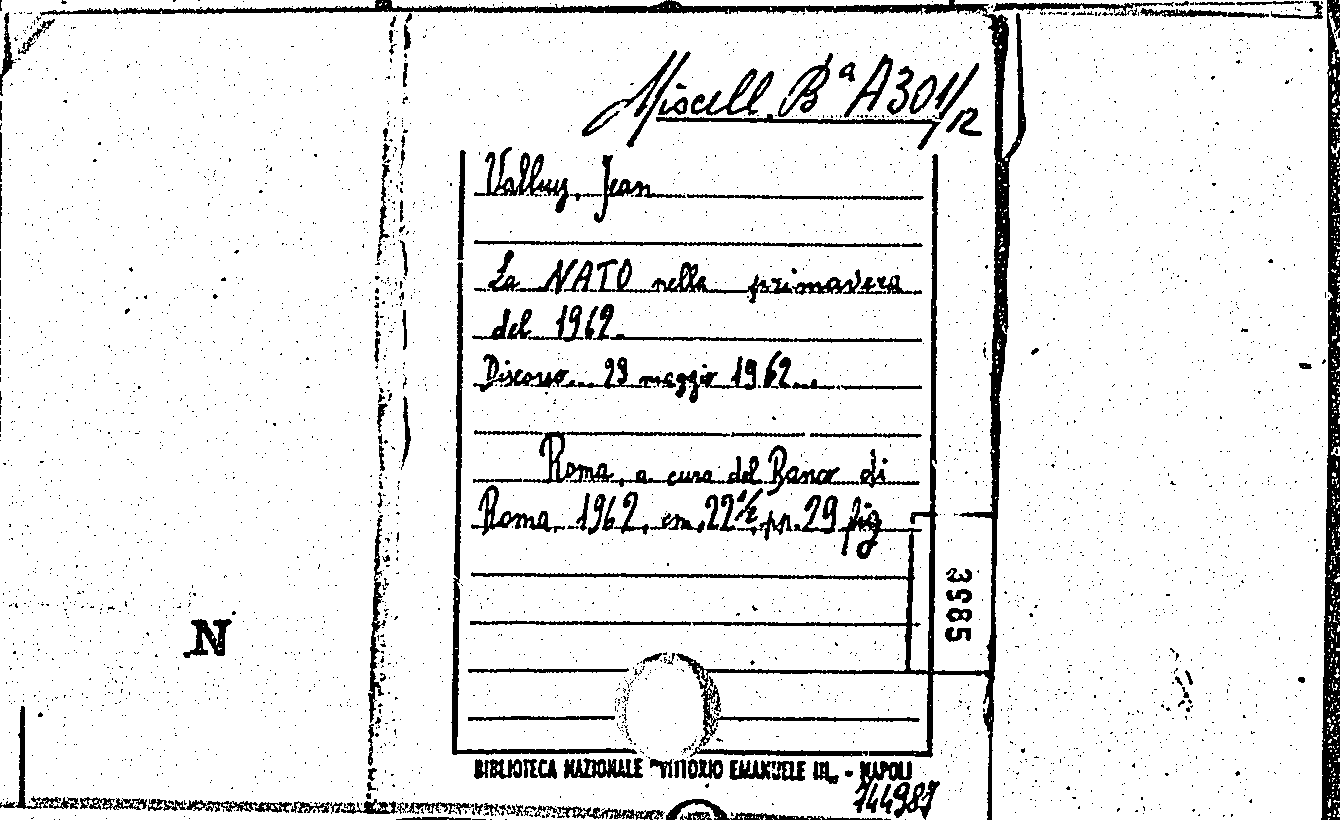 Miscell. Bª A301/12
Valluy, Jean
La NATO nella primavera
del 1962.
Discorso... 29 maggio 1962...
Roma, a cura del Banco di
Roma, 1962, cm. 22½, pp. 29 fig
3985
N
BIBLIOTECA NAZIONALE "VITTORIO EMANUELE III„ - NAPOLI
744987